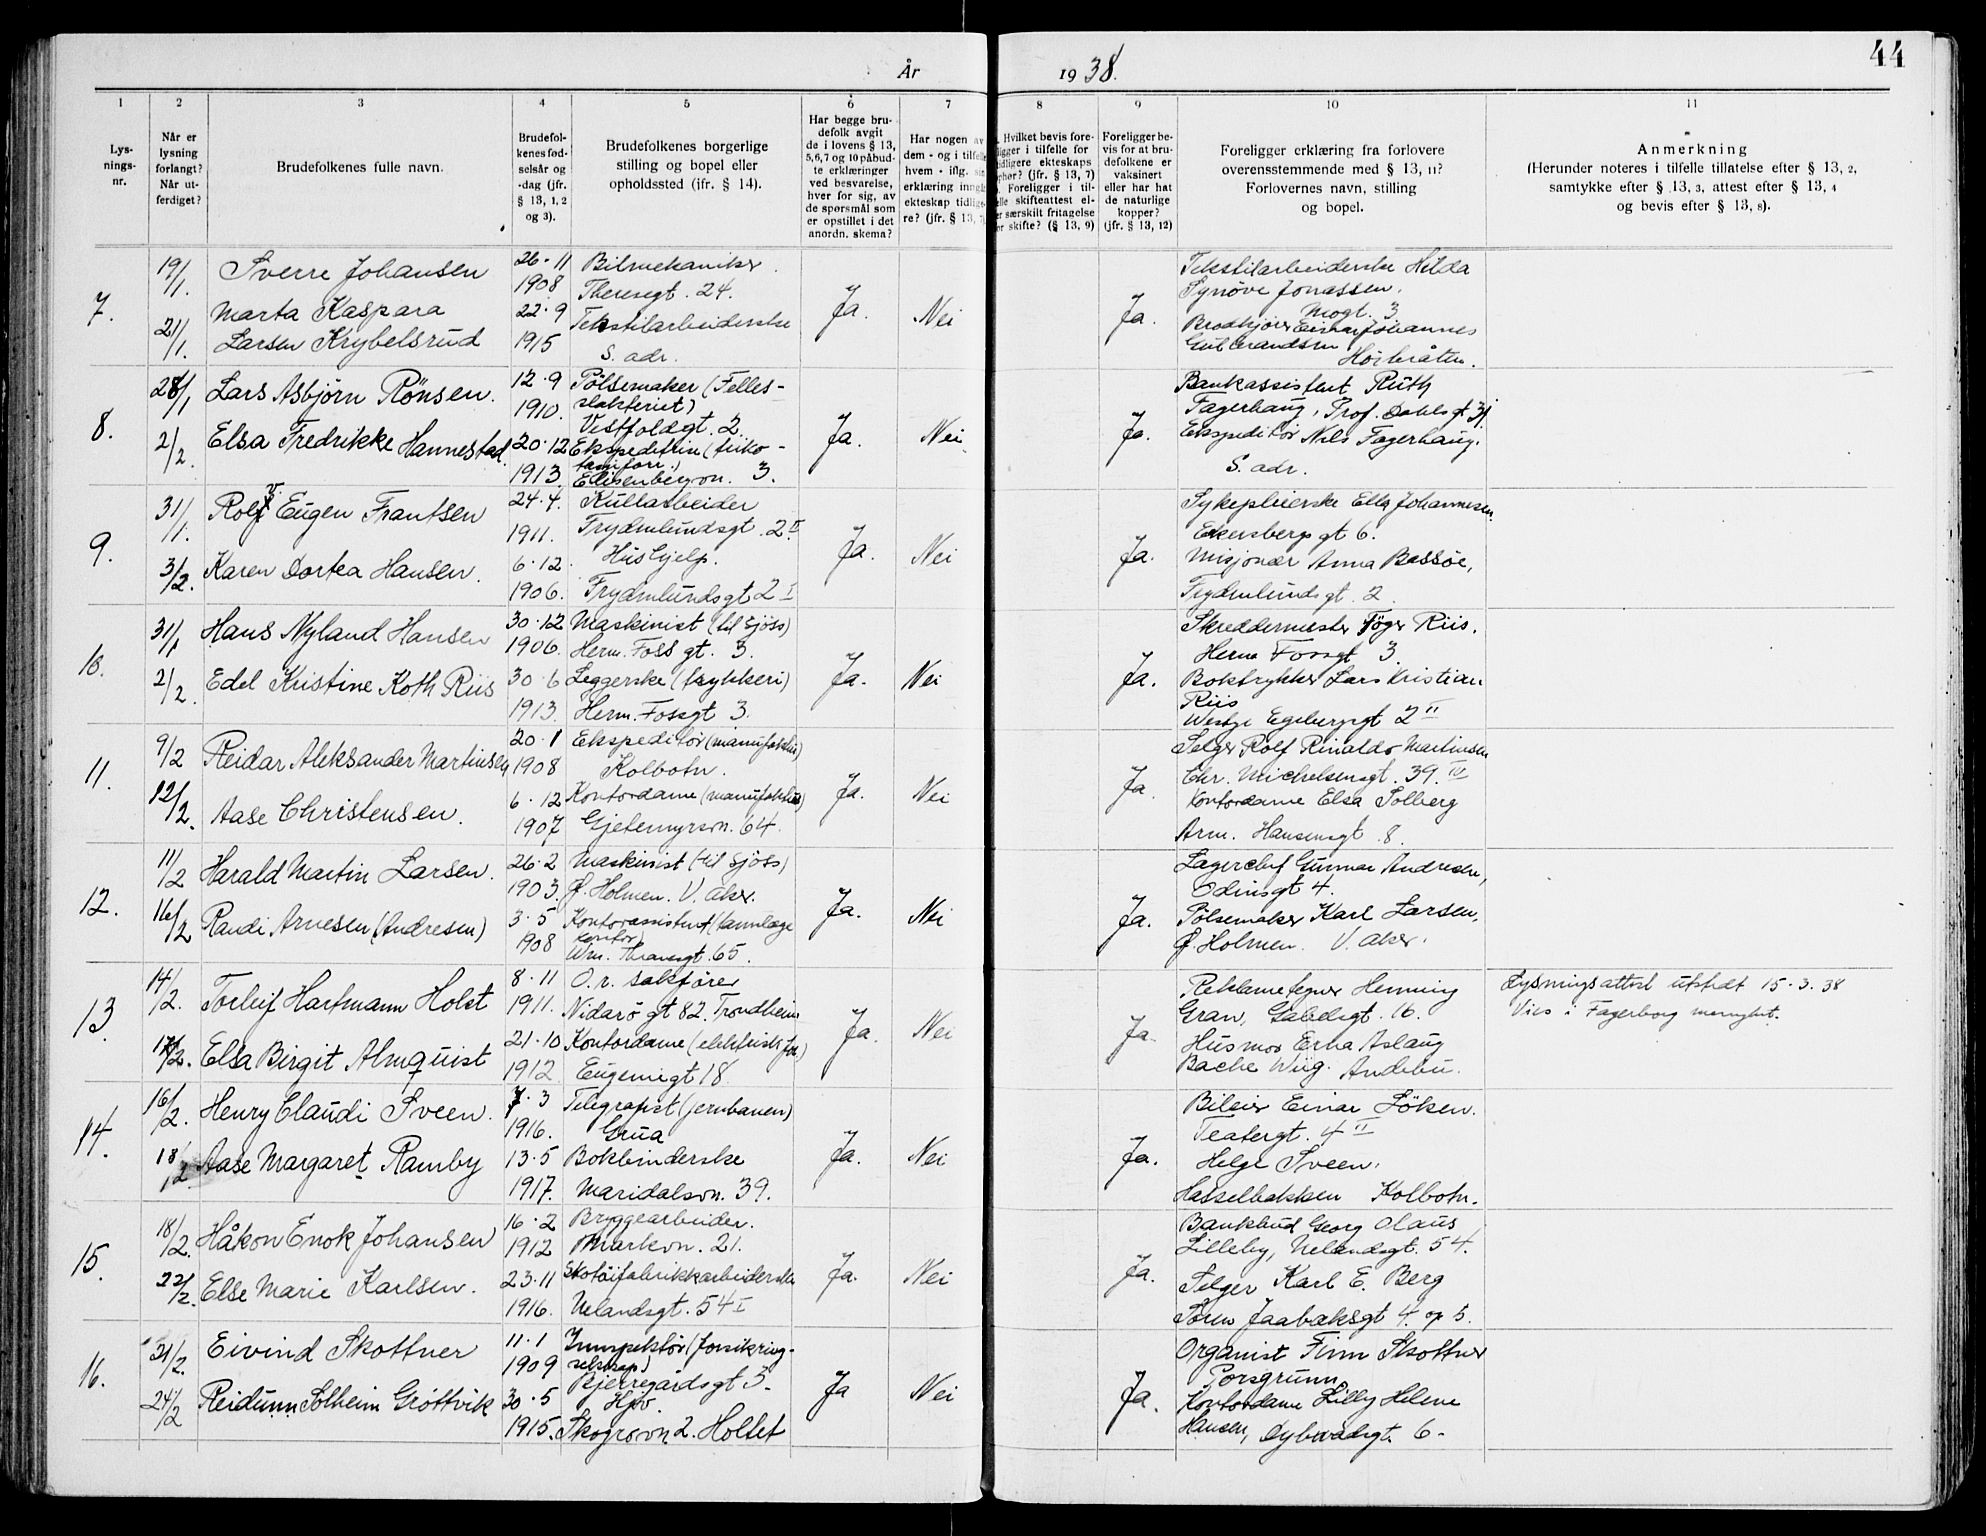 År 1938.
44
1 2 3 4 5 6 7 8 9 10 11
Lys-
nings-
nr.
Når er
lysning
forlangt?
Når ut-
ferdiget?
Brudefolkenes fulle navn.
Brudefol-
kenes fød-
selsår og
-dag (jfr.
§ 13, 1, 2
og 3).
Brudefolkenes borgerlige
stilling og bopel eller
opholdssted (ifr. § 14).
Har begge bru-
defolk avgit
de i lovens § 13,
5,6,7 og 10 påbud-
te erklæringer
ved besvarelse,
hver for sig, av
de spørsmål som
er opstillet i det
anordn. skema?
Har nogen av
dem - og i tilfelle
hvem - iflg. sin
erklæring inngått
ekteskap tidlige-
re? (jfr. § 13, 7)
Hvilket bevis fore-
ligger i tilfelle for
tidligere ekteskaps
ophør? (jfr. § 13, 7)
Foreligger i til-
felle skifteattest el-
ler særskilt fritagelse
for skifte? (§ 13, 9)
Foreligger be-
vis for at bru-
defolkene er
vaksinert
eller har hat
de naturlige
kopper?
(jfr. § 13, 12)
Foreligger erklæring fra forlovere
overensstemmende med § 13, 11?
Forlovernes navn, stilling
og bopel.
Anmerkning
(Herunder noteres i tilfelle tillatelse efter § 13, 2,
samtykke efter § 13, 3, attest efter § 13, 4
og bevis efter § 13, 8).
7.
19/1.
21/1.
Sverre Johansen
Marta Kaspara
Larsen Krybelsrud
26-11
1908
22-9
1915
Bilmekaniker
Theresegt. 24.
Tekstilarbeiderske
S. adr.
Ja.
Nei
Ja.
Tekstilarbeiderske Hilda
Synøve Jonassen,
Mogt. 3
Brødkjører Einar Johannes
Gulbrandsen
Høibråten.
8.
28/1
2/2.
Lars Asbjørn Rønsen.
Elsa Fredrikke Hannestad.
12-9
1910.
20-12
1913.
Pølsemaker (Felles-
slakteriet)
Vestfoldgt. 2
Ekspeditrise (triko-
tasjforr.)
Elisenbergvn. 3.
Ja.
Nei
Ja.
Bankassistent Ruth
Fagerhaug, Prof. Dahlsgt 31.
Ekspeditør Nils Fagerhaug.
S. adr.
9.
31/1.
3/2.
Rolf Eugen Frantsen
Karen Dortea Hansen.
24-4.
1911.
6-12.
1906.
Kullarbeider
Frydenlundsgt. 2 II
Hushjelp.
Frydenlundsgt 2 I
Ja.
Nei
Ja.
Sykepleierske Ella Johannesen.
Ekersbergsgt 6.
Misjonær Anna Bassøe,
Frydenlundsgt. 2.
10.
31/1
2/2.
Hans Nyland Hansen
Edel Kristine Koth Riis
30-12
1906.
30-6
1913.
Maskinist (til sjøss)
Herm. Foss gt. 3.
Leggerske (trykkeri)
Herm. Fossgt 3.
Ja.
Nei
Ja.
Skreddermester Tøger Riis.
Herm Fossgt 3.
Boktrykker Lars Kristian
Riis
Westye Egebergsgt 2 II
11.
9/2
12/2.
Reidar Aleksander Martinsen
Aase Christensen.
20-1
1908
6-12
1907
Ekspeditør (manufaktur)
Kolbotn.
Kontordame (manufaktur)
Gjetemyrsvn. 64.
Ja.
Nei
Ja.
Selger Rolf Rinaldo Martinsen
Chr. Michelsensgt. 39. IV
Kontordame Elsa Solberg
Arm. Hansensgt. 8.
12.
11/2
16/2
Harald Martin Larsen.
Randi Arnesen (Andresen)
26-2
1903.
3-5
1908
Maskinist (til sjøss)
Ø. Holmen. V. Aker.
Kontorassistent (tannlege
kontor)
Wm. Thranesgt. 65.
Ja.
Nei
Ja.
Lagerchef Gunnar Andresen,
Odinsgt 4.
Pølsemaker Karl Larsen.
Ø. Holmen. V. Aker.
13.
14/2.
17/2.
Torleif Hartmann Holst
Elsa Birgit Almquist
8-11
1911.
21-10
1912
O.r. sakfører
Nidarø gt 82. Trondheim
Kontordame (elektrisk forr.)
Eugeniegt 18.
Ja.
Nei
Ja.
Reklametegner Henning
Gran, Gabelsgt. 16.
Husmor Erna Aslaug
Bache Wiig. Andebu.
Lysningsattest utstedt 15-3-38
Vies i Fagerborg menighet.
14.
16/2.
18/2
Henry Claudi Sveen.
Aase Margaret Ramby
7-3
1916.
13-5
1917.
Telegrafist (jernbanen)
Grua
Bokbinderske
Maridalsvn. 39.
Ja.
Nei
Ja.
Bileier Einar Løken.
Teatergt. 4 II
Helge Sveen,
Hasselbakken Kolbotn.
15.
18/2.
22/2.
Håkon Enok Johansen
Else Marie Karlsen.
16-2
1912
23-11
1916.
Bryggearbeider.
Markvn. 21.
Skotøifabrikkarbeiderske
Uelandsgt. 54 I
Ja.
Nei
Ja.
Bankbud Georg Olaus
Lilleby, Uelandsgt. 54.
Selger Karl E. Berg
Søren Jaabæksgt 4. op 5.
16.
21/2.
24/2
Eivind Skottner
Reidunn Solheim Grøttvik
11-1
1909
30-5
1915.
Innspektør (forsikring-
selskap)
Bjerregårdsgt 3-
Hjv.
Skogrovn 2. Holtet
Ja
Nei
Ja.
Organist Finn Skottner
Porsgrunn,
Kontordame Lilly Helene
Hansen, Dybwadsgt. 6-